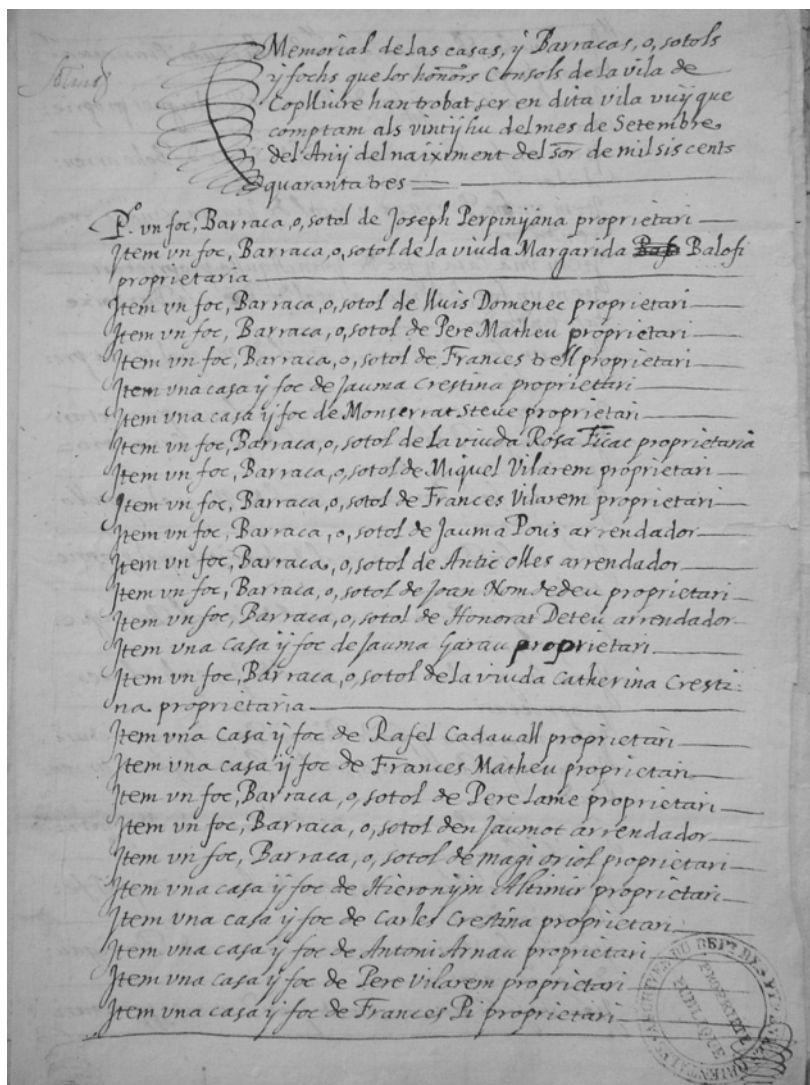 Memorial de las casas, ÿ Barracas, o, sotols
ÿ fochs que los honn̄ors Consols de la vila de
Copllivre han trobat ser en dita vila vuÿ que
comptam als vint ÿ hu del mes de Setembre
del Anÿ del naiximent del Sōr de mil sis cents
quaranta tres
P.º vn foc, Barraca, o, sotol de Joseph Perpinÿana proprietari
Item vn foc, Barraca, o, sotol de la viuda Margarida Balosi
proprietaria
Item vn foc, Barraca, o, sotol de lluis Domenec proprietari
Item vn foc, Barraca, o, sotol de Pere Matheu proprietari
Item vn foc, Barraca, o, sotol de Frances trell proprietari
Item vna casa ÿ foc de Jauma Crestina proprietari
Item vna casa ÿ foc de Monserrat Steue proprietari
Item vn foc, Barraca, o, sotol de la viuda Rosa Ticac proprietaria
Item vn foc, Barraca, o, sotol de Miquel Vilarem proprietari
Item vn foc, Barraca, o, sotol de Frances Vilarem proprietari
Item vn foc, Barraca, o, sotol de Jauma Pous arrendador
Item vn foc, Barraca, o, sotol de Antic olles arrendador
Item vn foc, Barraca, o, sotol de Joan Nomdedeu proprietari
Item vn foc, Barraca, o, sotol de Honorat Deteu arrendador
Item vna casa ÿ foc de Jauma Garau proprietari
Item vn foc, Barraca, o, sotol de la viuda Catherina Cresti:
na proprietaria
Item vna Casa ÿ foc de Rafel Cadauall proprietari
Item vna casa ÿ foc de Frances Matheu proprietari
Item vn foc, Barraca, o, sotol de Pere Lame proprietari
Item vn foc, Barraca, o, sotol den Jaumot arrendador
Item vn foc, Barraca, o, sotol de magi oriol proprietari
Item vna casa ÿ foc de Hieronÿm Altimir proprietari
Item vna casa ÿ foc de Carles Crestina proprietari
Item vna casa ÿ foc de Antoni Arnau proprietari
Item vna casa ÿ foc de Pere Vilarem proprietari
Item vna casa ÿ foc de Frances Pi proprietari